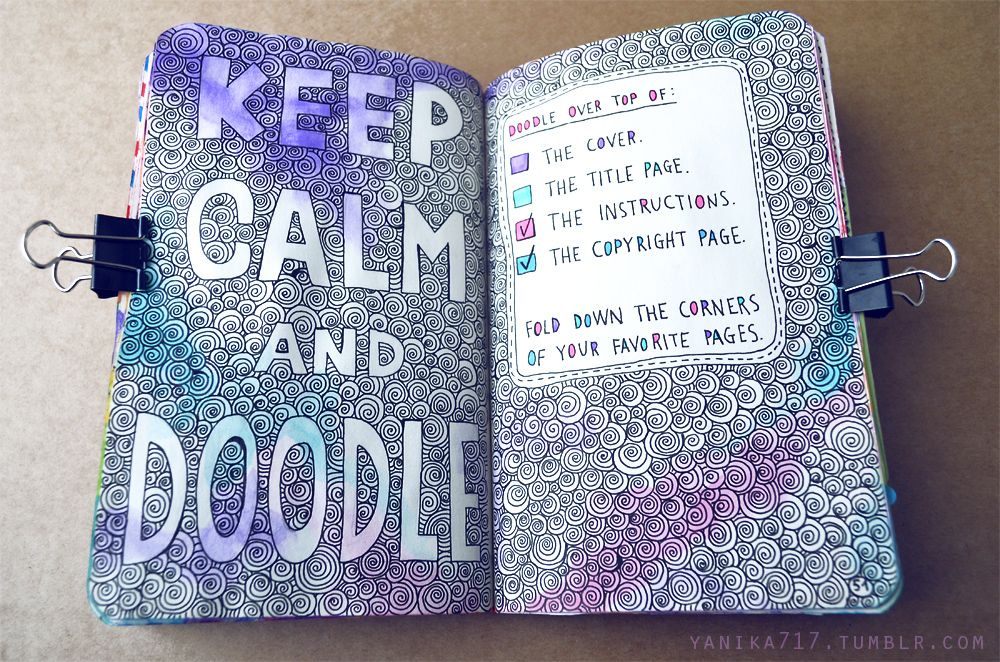 KEEP
CALM
AND
DOODLE
DOODLE OVER TOP OF:
THE COVER.
THE TITLE PAGE.
THE INSTRUCTIONS.
THE COPYRIGHT PAGE.
FOLD DOWN THE CORNERS
OF YOUR FAVORITE PAGES.
54
YANIKA717.TUMBLR.COM